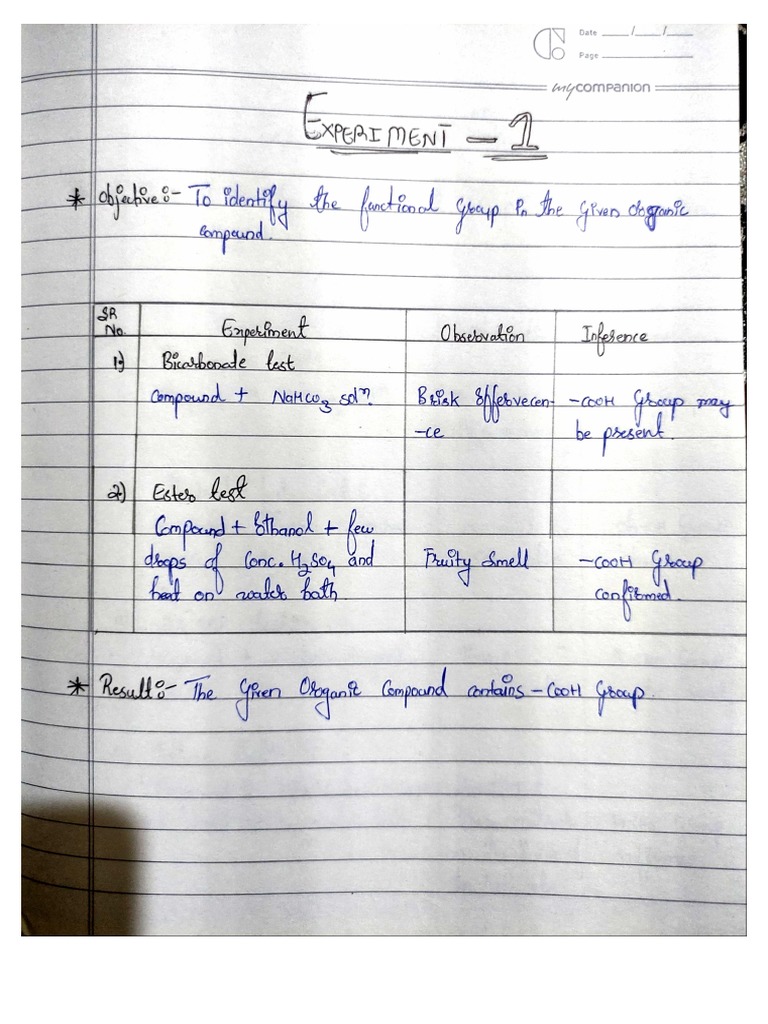 Date __/__/__
Page
mycompanion
EXPERIMENT - 1
* Objective:- To identify the functional Group in the Given organic
compound.
SR No. Experiment Observation Inference
1) Bicarbonate test
Compound + NaHCO3 sol^n. Brisk Effervecen- -COOH Group may
-ce be present.
2) Ester test
Compound + Ethanol + few
drops of Conc. H2SO4 and Fruity Smell -COOH Group
heat on water bath confirmed.
* Result:- The Given Organic Compound contains -COOH Group.